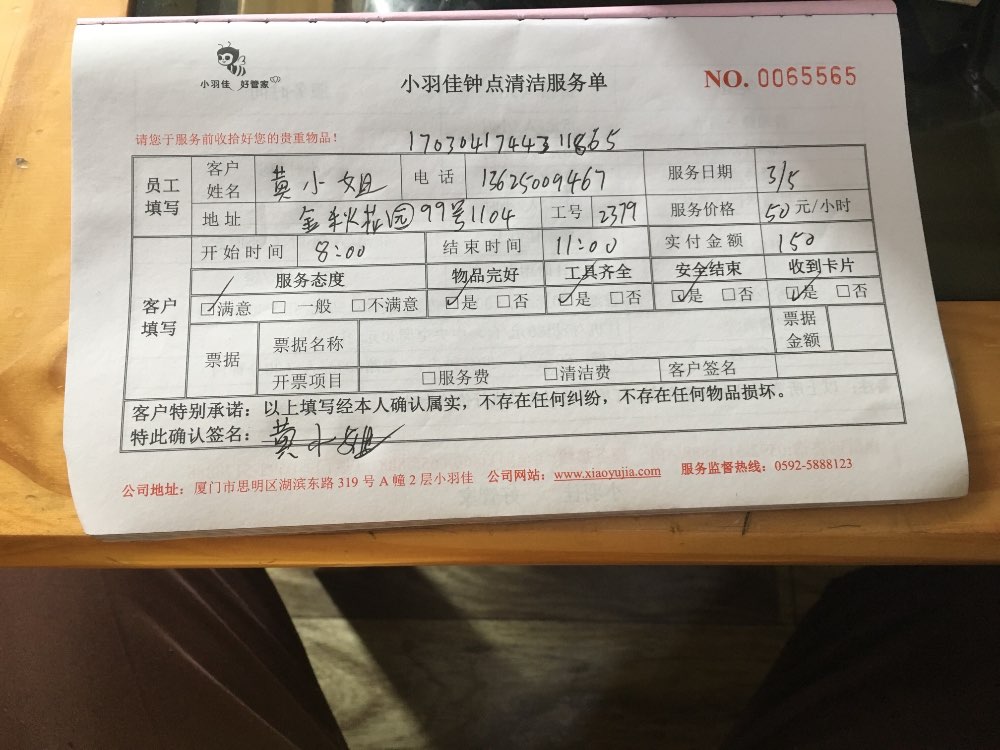 小羽佳 好管家
小羽佳钟点清洁服务单
NO. 0065565
请您于服务前收拾好您的贵重物品！
1703041744311865
员工填写 客户姓名 黄小姐 电话 13625009467 服务日期 3/5
地址 金秋花园99号1104 工号 2379 服务价格 50元/小时
开始时间 8:00 结束时间 11:00 实付金额 150
客户填写 服务态度 物品完好 工具齐全 安全结束 收到卡片
☑满意 □一般 □不满意 ☑是 □否 ☑是 □否 ☑是 □否 ☑是 □否
票据 票据名称 票据金额
开票项目 □服务费 □清洁费 客户签名
客户特别承诺：以上填写经本人确认属实，不存在任何纠纷，不存在任何物品损坏。
特此确认签名：黄小姐
公司地址：厦门市思明区湖滨东路319号A幢2层小羽佳 公司网站：www.xiaoyujia.com 服务监督热线：0592-5888123